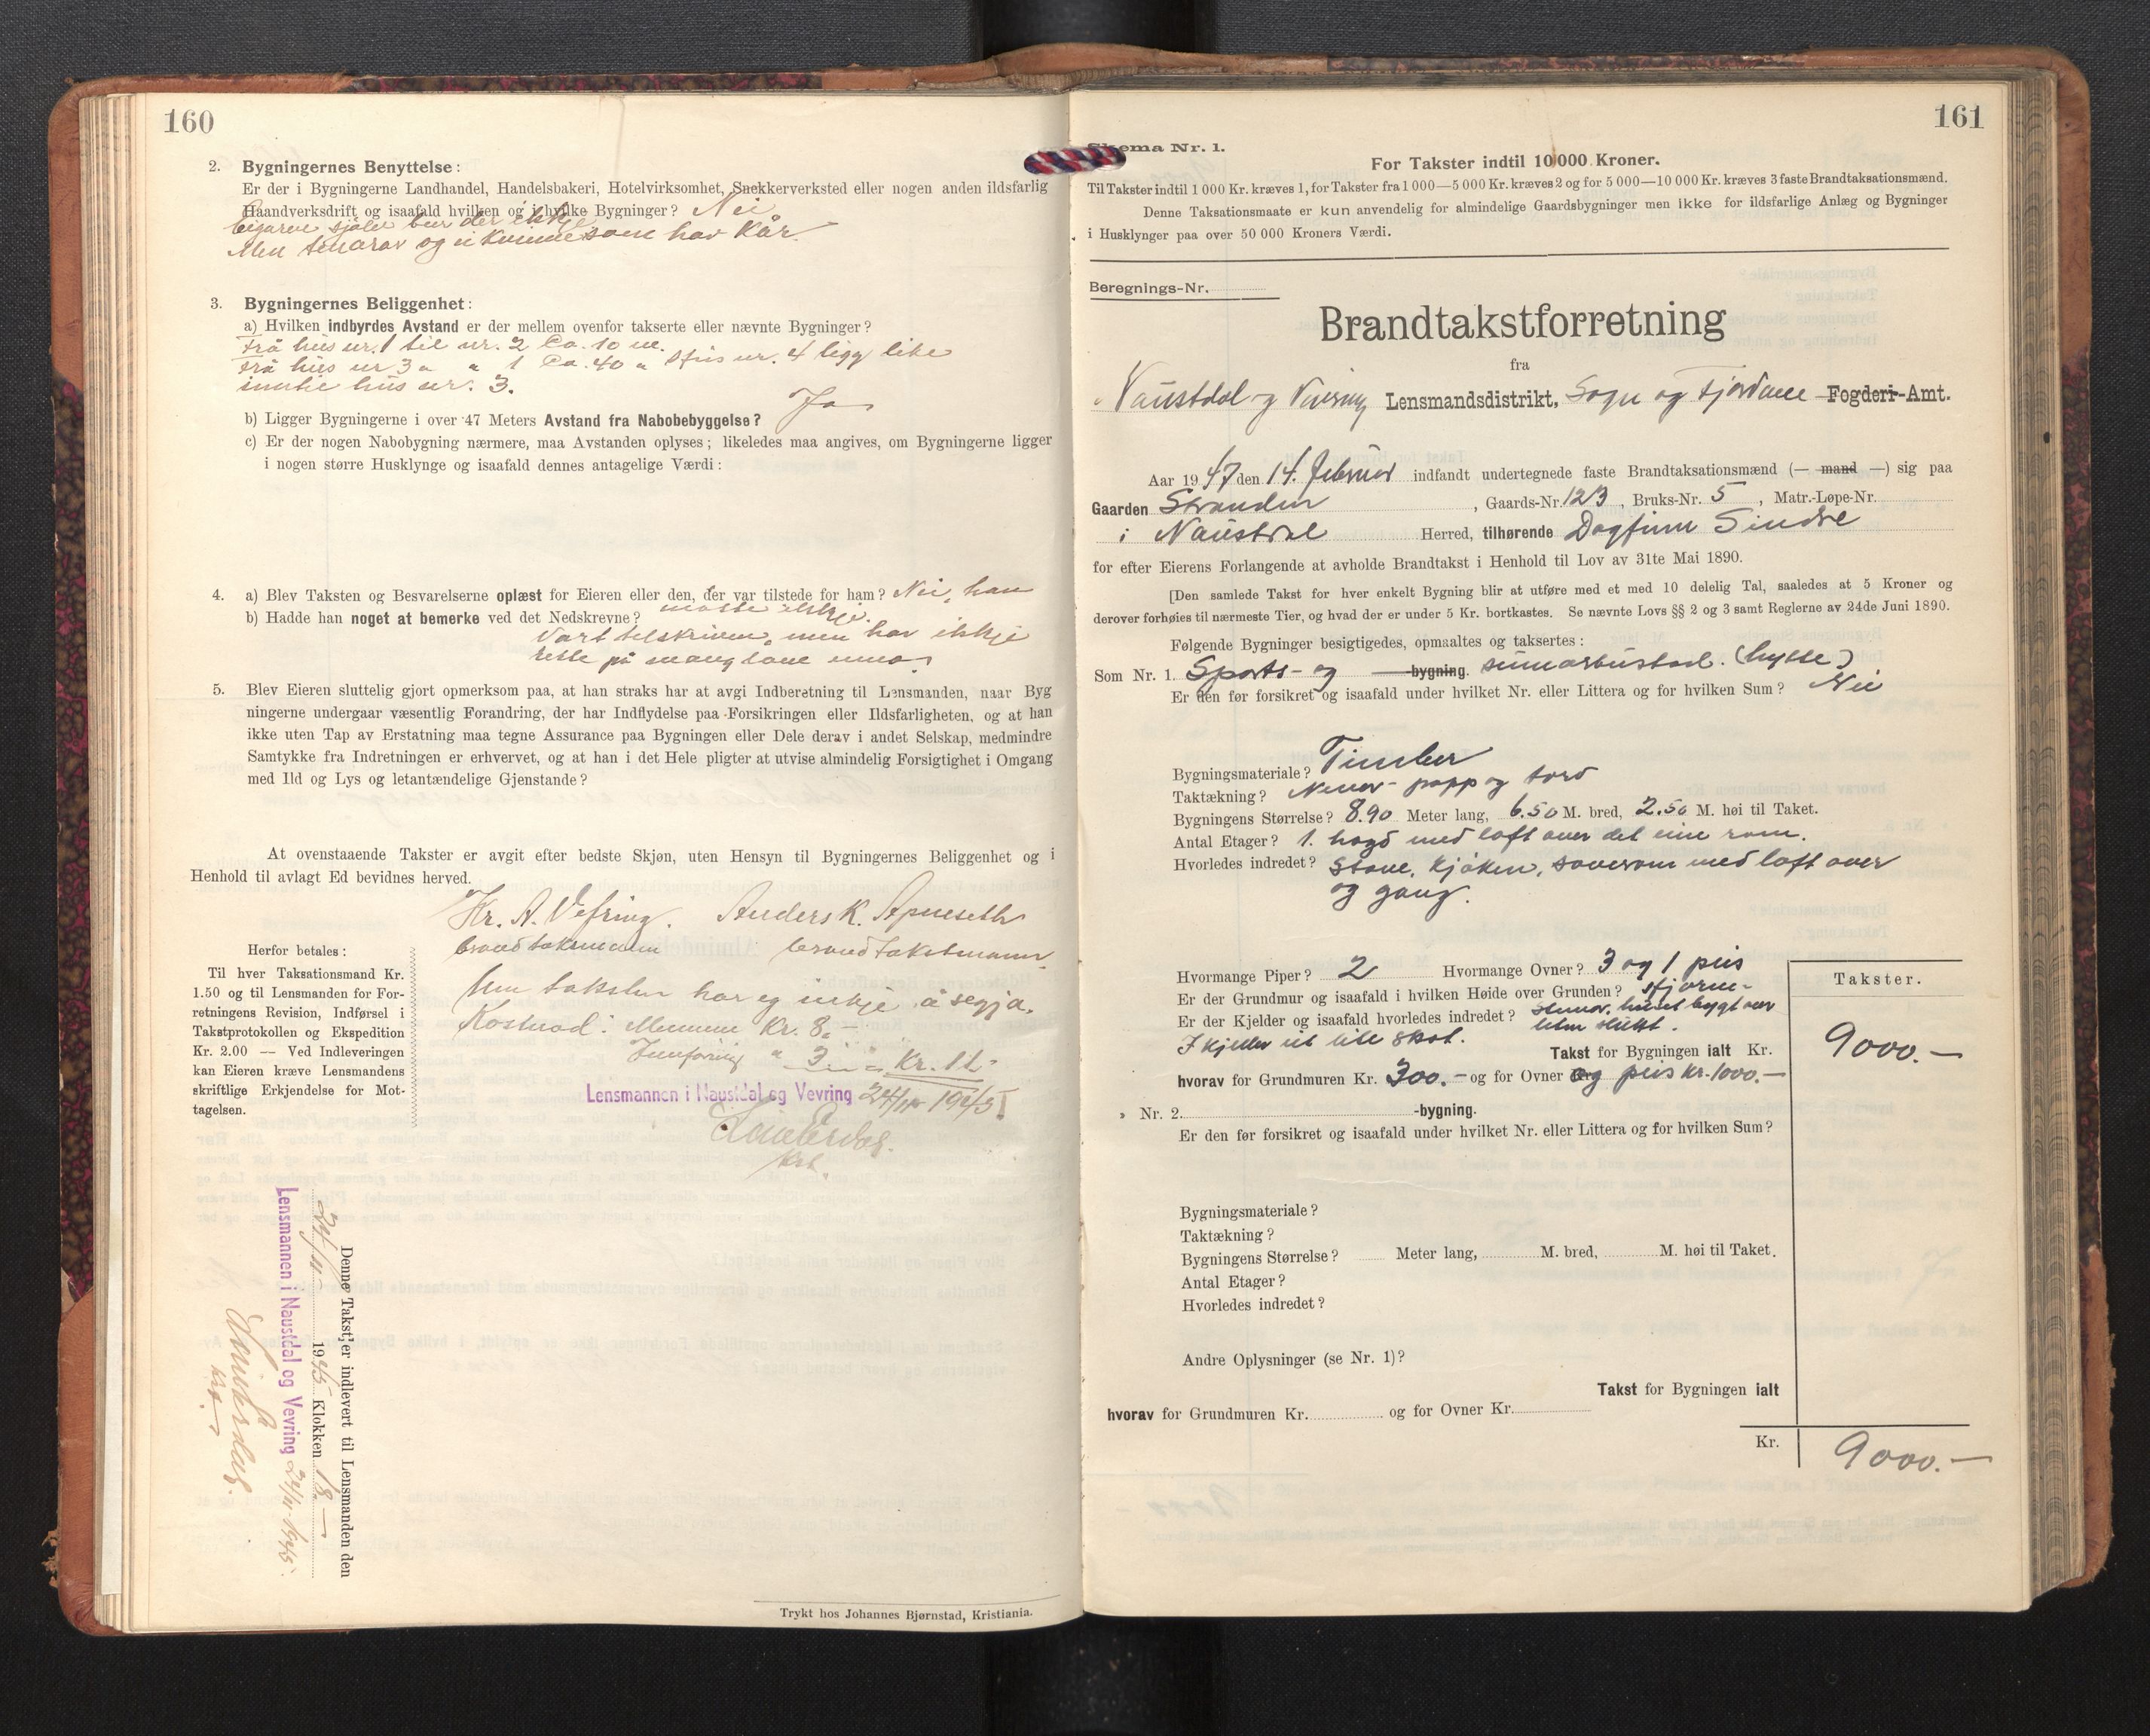 160
2. Bygningernes Benyttelse:
Er der i Bygningerne Landhandel, Handelsbakeri, Hotelvirksomhet, Snekkerverksted eller nogen anden ildsfarlig
Haandverksdrift og isaafald hvilken og i hvilke Bygninger? Nei
Eigaren sjølv bur der ikkje
Men tenarar og ei kvinne som har kår
3. Bygningernes Beliggenhet:
a) Hvilken indbyrdes Avstand er der mellem ovenfor takserte eller nævnte Bygninger?
Frå hus nr. 1 til nr. 2 Ca. 10 m.
Frå hus nr 3 " " 1 Ca. 40 " Hus nr. 4 ligg like
inntil hus nr. 3.
b) Ligger Bygningerne i over 47 Meters Avstand fra Nabobebyggelse? Ja
c) Er der nogen Nabobygning nærmere, maa Avstanden oplyses; likeledes maa angives, om Bygningerne ligger
i nogen større Husklynge og isaafald dennes antagelige Værdi:
4. a) Blev Taksten og Besvarelserne oplæst for Eieren eller den, der var tilstede for ham? Nei, han
møtte ikkje.
b) Hadde han noget at bemerke ved det Nedskrevne?
Vart tilskriven, men har ikkje
rette på
5. Blev Eieren sluttelig gjort opmerksom paa, at han straks har at avgi Indberetning til Lensmanden, naar Byg
ningerne undergaar væsentlig Forandring, der har Indflydelse paa Forsikringen eller Ildsfarligheten, og at han
ikke uten Tap av Erstatning maa tegne Assurance paa Bygningen eller Dele derav i andet Selskap, medmindre
Samtykke fra Indretningen er erhvervet, og at han i det Hele pligter at utvise almindelig Forsigtighet i Omgang
med Ild og Lys og letantændelige Gjenstande?
At ovenstaaende Takster er avgit efter bedste Skjøn, uten Hensyn til Bygningernes Beliggenhet og i
Henhold til avlagt Ed bevidnes herved.
Kr. A. Vefring. Anders K. Apneseth
brandtakstmann brandtakstmann.
Um taksten har eg inkje å segja.
Kostnad: Mennene Kr. 8,-
Innføring " 3,- = Kr. 11,-
Lensmannen i Naustdal og Vevring 24/11 1945
Krt.
Herfor betales:
Til hver Taksationsmand Kr.
1.50 og til Lensmanden for For-
retningens Revision, Indførsel i
Takstprotokollen og Ekspedition
Kr. 2.00 — Ved Indleveringen
kan Eieren kræve Lensmandens
skriftlige Erkjendelse for Mot-
tagelsen.
Denne Takst er indlevert til Lensmanden den
24/11 1945 Klokken 18 —
Lensmannen i Naustdal og Vevring 24/11-1945
Krt.
Trykt hos Johannes Bjørnstad, Kristiania.
161
Skema Nr. 1.
For Takster indtil 10 000 Kroner.
Til Takster indtil 1 000 Kr. kræves 1, for Takster fra 1 000—5 000 Kr. kræves 2 og for 5 000—10 000 Kr. kræves 3 faste Brandtaksationsmænd.
Denne Taksationsmaate er kun anvendelig for almindelige Gaardsbygninger men ikke for ildsfarlige Anlæg og Bygninger
i Husklynger paa over 50 000 Kroners Værdi.
Beregnings-Nr.
Brandtakstforretning
fra
Naustdal og Vevring Lensmandsdistrikt, Sogn og Fjordane Fogderi-Amt.
Aar 1947 den 14. februar indfandt undertegnede faste Brandtaksationsmænd (— mand —) sig paa
Gaarden Stranden, Gaards-Nr. 123, Bruks-Nr. 5, Matr.-Løpe-Nr.
i Naustdal Herred, tilhørende Dagfinn Sindre
for efter Eierens Forlangende at avholde Brandtakst i Henhold til Lov av 31te Mai 1890.
[Den samlede Takst for hver enkelt Bygning blir at utføre med et med 10 delelig Tal, saaledes at 5 Kroner og
derover forhøies til nærmeste Tier, og hvad der er under 5 Kr. bortkastes. Se nævnte Lovs §§ 2 og 3 samt Reglerne av 24de Juni 1890.
Følgende Bygninger besigtigedes, opmaaltes og taksertes:
Som Nr. 1. Sports- og -bygning. sumarbustad. (hytte)
Er den før forsikret og isaafald under hvilket Nr. eller Littera og for hvilken Sum? Nei
Bygningsmateriale? Timber
Taktækning? Never- papp og torv
Bygningens Størrelse? 8.90 Meter lang, 6.50 M. bred, 2.50 M. høi til Taket.
Antal Etager? 1. høgd med loft over det eine rom.
Hvorledes indredet? Stove, kjøken, soverom med loft over
og gang.
Hvormange Piper? 2 Hvormange Ovner? 3 og 1 peis
Er der Grundmur og isaafald i hvilken Høide over Grunden?
Er der Kjelder og isaafald hvorledes indredet? huset bygt over
I kjeller eit lite skot.
Takst for Bygningen ialt Kr.
hvorav for Grundmuren Kr. 300.- og for Ovner og peis kr. 1000.-
Takster.
9000.-
Nr. 2. -bygning.
Er den før forsikret og isaafald under hvilket Nr. eller Littera og for hvilken Sum?
Bygningsmateriale?
Taktækning?
Bygningens Størrelse? Meter lang, M. bred, M. høi til Taket.
Antal Etager?
Hvorledes indredet?
Andre Oplysninger (se Nr. 1)?
Takst for Bygningen ialt
hvorav for Grundmuren Kr. og for Ovner Kr.
Kr. 9000.-